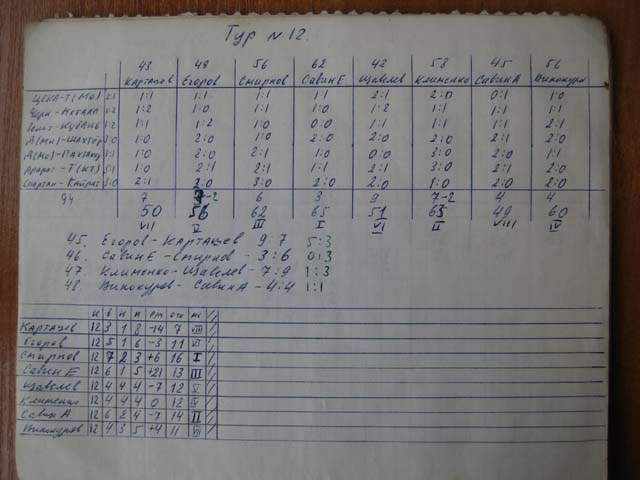 Тур N 12
43 49 56 62 42 58 45 56
Карташов Егоров Смирнов Савин Е Щавелев Клименко Савин А Винокуров
ЦСКА-Т(Мо) 1:1 1:1 1:1 1:1 2:1 2:0 0:1 1:0
Черн-Металл 1:2 1:2 1:0 1:1 1:0 1:2 1:1 1:1 1:1
Зенит-Кубань 1:1 1:2 1:0 0:0 1:1 1:1 1:1 2:1
Д(Ми)-Шахтёр 1:0 2:0 1:0 2:0 2:0 2:0 2:1 2:0
Д(Мо)-Пахтакор 1:0 2:0 2:1 1:0 0:0 3:0 2:0 1:1
Арарат-Т(Кт) 1:0 2:1 2:1 1:1 2:1 3:0 2:1 1:1
Спартак-Кайрат 3:0 2:1 2:0 3:0 2:0 2:0 1:0 2:0 2:0
94 7 6 3 9 7-2 4 4
50 56 62 65 51 63 49 60
VII V III I VI II VIII IV
45. Егоров-Карташов 9:7 5:3
46. Савин Е-Смирнов - 3:6 0:3
47 Клименко-Щавелев - 7:9 1:3
48. Винокуров-Савин А - 4:4 1:1
И В Н П РМ очк М
Карташов 12 3 1 8 -14 7 VIII
Егоров 12 5 1 6 -3 11 VI
Смирнов 12 7 2 3 +6 16 I
Савин Е 12 6 1 5 +21 13 III
Щавелев 12 4 4 4 -7 12 V
Клименко 12 4 4 4 0 12 IV
Савин А 12 6 2 4 -7 14 II
Винокуров 12 4 3 5 +4 11 VII